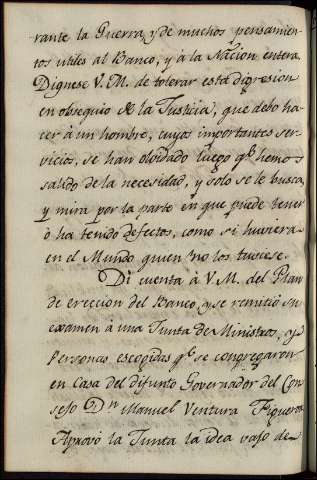 rante la Guerra, y de muchos pensamien
tos utiles al Banco, y à la Nacion entera.
Dignese V. M. de tolerar esta digresion
en obsequio de la Justicia, que debo ha-
cer à un hombre, cuyos importantes ser-
vicios, se han olvidado luego qe. hemos
salido de la necesidad, y solo se le busca,
y mira por la parte en que puede tener
ò ha tenido defectos, como si huviera
en el Mundo quien no los tuviese.
Di cuenta à V. M. del Plan
de ereccion del Banco, y se remitió su
examen à una Junta de Ministros, y
Personas escogidas qe. se congregaron
en Casa del difunto Governador del Con
sejo Dn. Manuel Ventura Figueroa
Aprovó la Junta la idea vajo de